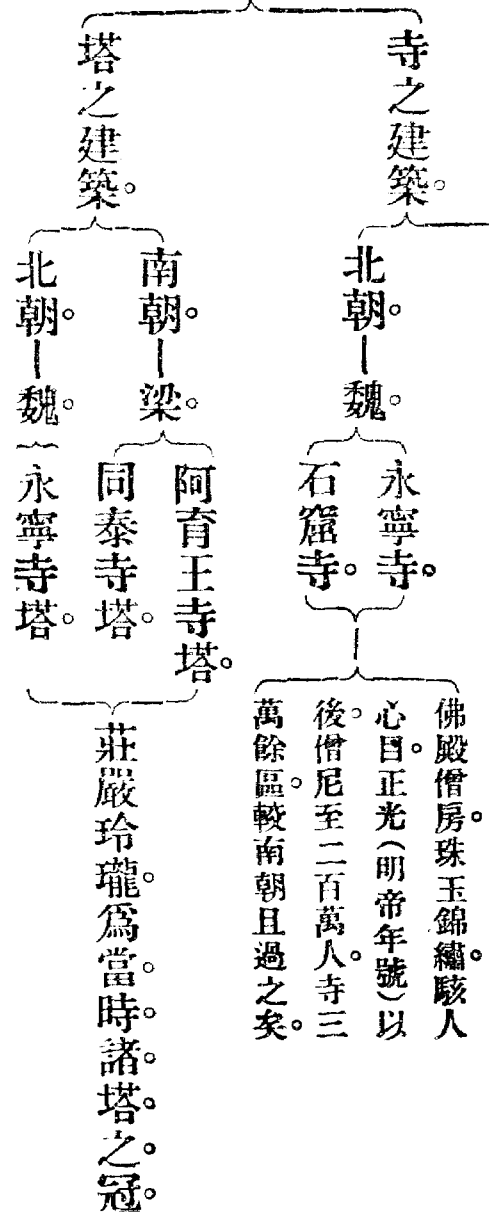 寺之建築。
北朝。—魏。
永寧寺。
石窟寺。
佛殿僧房。珠玉錦繡。駭人
心目。正光(明帝年號)以
後。僧尼至二百萬人。寺三
萬餘區。較南朝且過之矣。
塔之建築。
南朝。—梁。
阿育王寺塔。
同泰寺塔。
北朝。—魏。
永寧寺塔。
莊嚴玲瓏。爲當。時。諸。塔。之。冠。